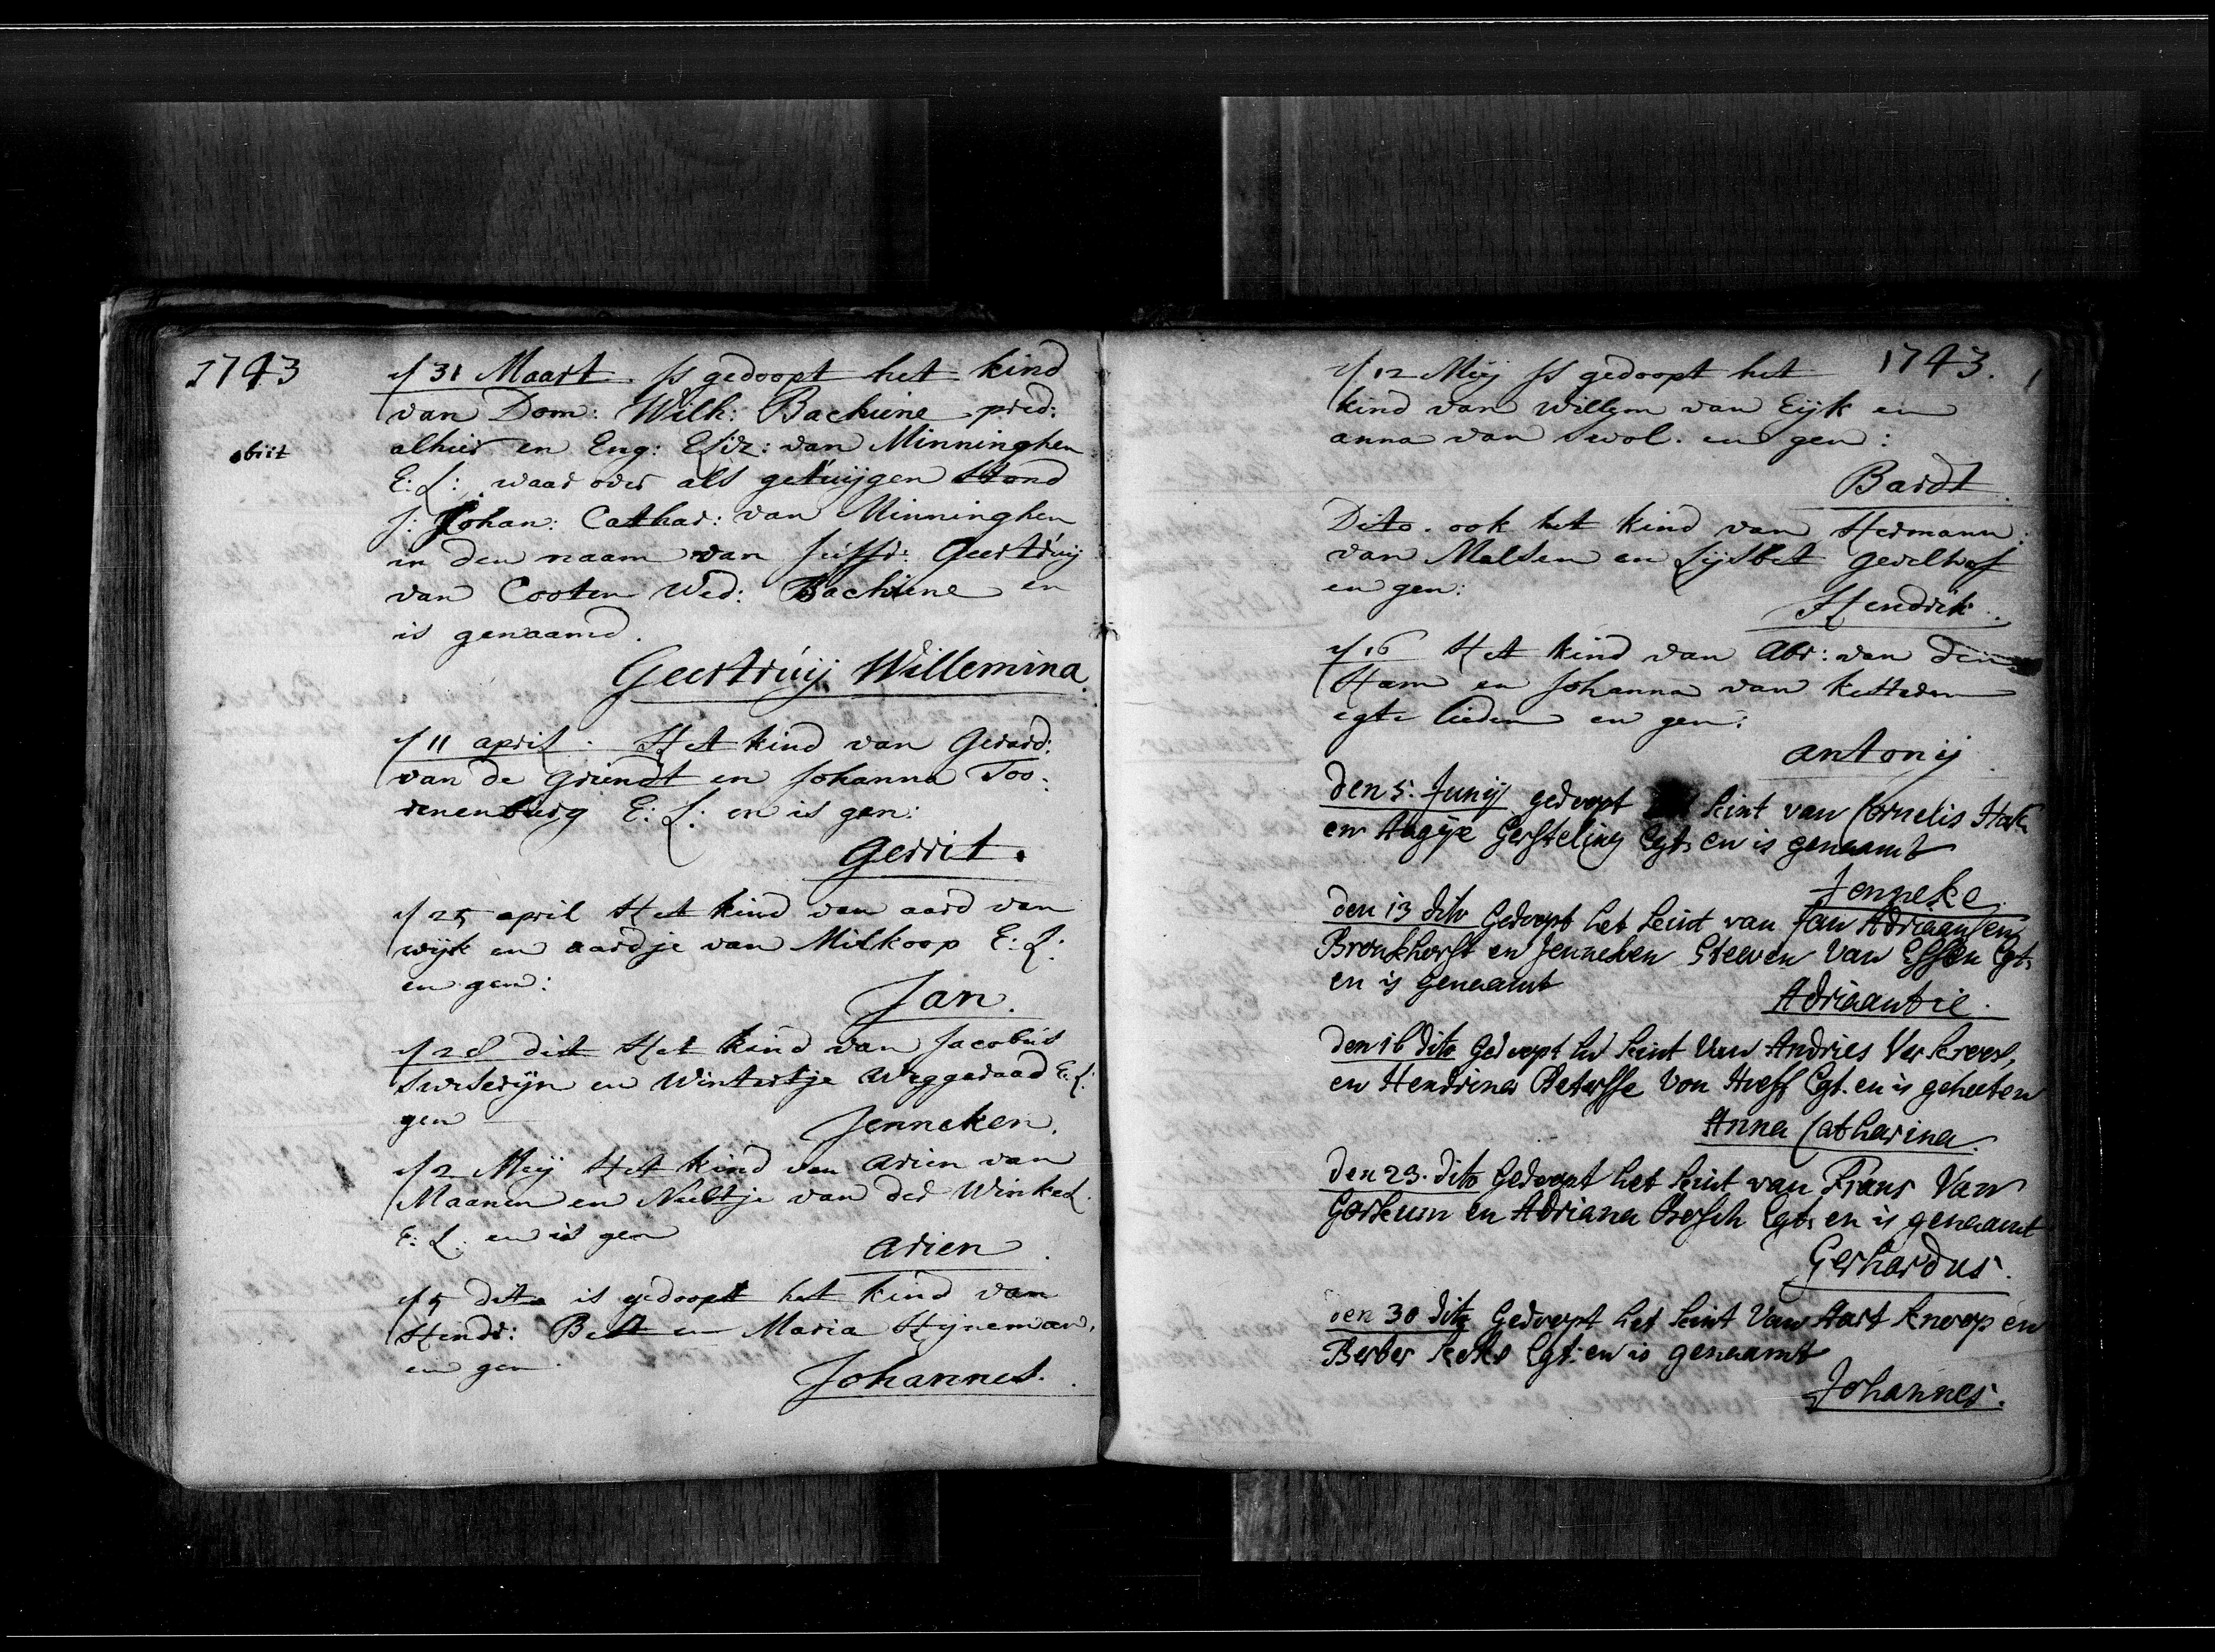 1743
d 31 Maart. Is gedoopt het kind
van Dom: Wilh: Bachiene pred:
alhier en Eug: Eliz: van Minninghen
obiit
E: L: waar over als getuijgen stond
J: Johan: Cathar: van Minninghen
in den naam van Juffr: Geertruij
van Cooten Wed: Bachiene en
is genaamd.
Geertruij Willemina.
d 11 april. Het kind van Gerard:
van de Griendt en Johanna Too:
renenburg E: L: en is gen:
Gerrit.
d 25 april Het kind van aard van
wijk en aardje van Milkoop E: L:
en gen:
Jan.
d 28 dit Het kind van Jacobus
Severijn en Wintertje Weggeraad E: L:
gen
Jenneken.
d 2 Meij Het kind van arien van
Maanen en Neeltje van der Winkel.
E: L: en is gen
arien.
d 5 dito is gedoopt het kind van
Hendr: Belt en Maria Hijneman,
en gen.
Johannes.
1743.
d 12 Meij Is gedoopt het
kind van willem van Eijk en
anna van swol. en gen:
Bardt.
Dito. ook het kind van Hermann:
van Malsen en Lijsbet Gerelhof
en gen:
Hendrik.
d 16 Het kind van Abr: van den
Ham en Johanna van Ketteren
egte lieden en gen:
antonij.
den 5. Junij gedoopt kint van Cornelis Hak
en Aagije Gersteling Egt. en is genaamt
Jenneke.
den 13 dito Gedoopt het kint van Jan Adriaansen
Bronkhorst en Jenneken Steeven Van Essen Egt.
en is genaamt
Adriaantie.
den 16 dito Gedoopt het kint Van Andries Verkroost,
en Hendrina Petersse Von Hoeff Egt. en is geheeten
Anna Catharina.
den 23. dito Gedoopt het kint van Frans Van
Gorkum en Adriana Bosch Egt. en is genaamt
Gerhardus.
den 30 dito Gedoopt het kint Van Aart Knoop en
Berber Egt. en is genaamt
Johannes.